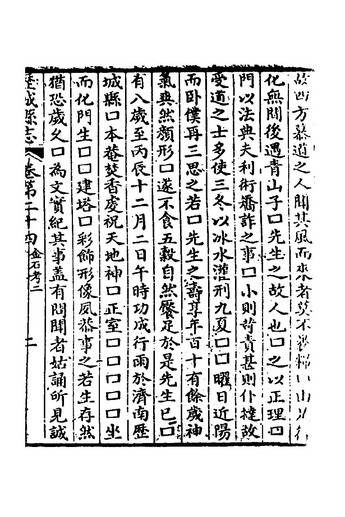 故四方慕道之人聞其風而來者莫不
化無間後遇青山子口先生之故人也口之以正理口
門以法典夫利術譎詐之事口小則苛責甚則仆撻故
受道之士多使三冬以冰水灌刑九夏口口曝日近陽
而卧僕再三思之若口先生之壽享年百十有餘歲神
氣爽然顏形口遂不食五穀自然饜足於是先生已口
有八歲至丙辰十二月二日午時功成行雨於濟南歷
城縣口本菴焚香處祝天地神口正室口口口口坐
而化門生口口建塔口彩飾形像夙恭事之若生存然
猶恐歲久口為文實紀其事蓋有問聞者姑誦所見誠
歷城縣志 卷第二十四 金石考二 二